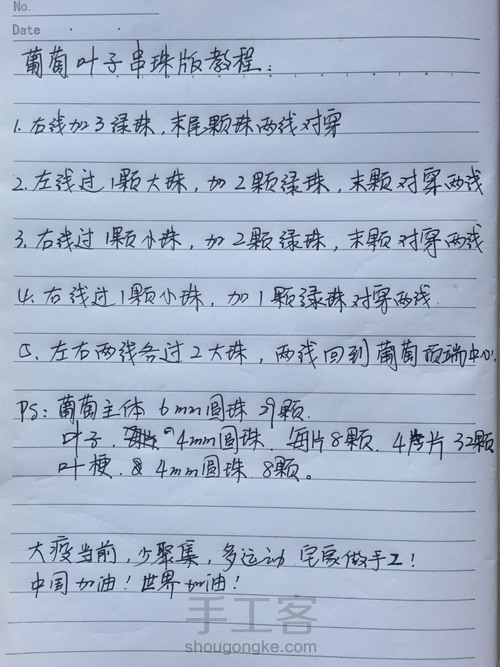 No.
Date
葡萄叶子串珠版教程:
1. 右线加3绿珠,末尾颗珠两线对穿
2. 左线过1颗大珠,加2颗绿珠,末颗对穿两线
3. 右线过1颗小珠,加2颗绿珠,末颗对穿两线
4. 右线过1颗小珠,加1颗绿珠对穿两线.
5. 左右两线各过2大珠,两线回到葡萄顶端中心.
PS: 葡萄主体 6mm圆珠 29颗.
叶子. 4mm圆珠. 每片8颗. 4片32颗
叶梗. 4mm圆珠 8颗。
大疫当前,少聚集,多运动 宅家做手工!
中国加油!世界加油!
手工客
shougongke.com